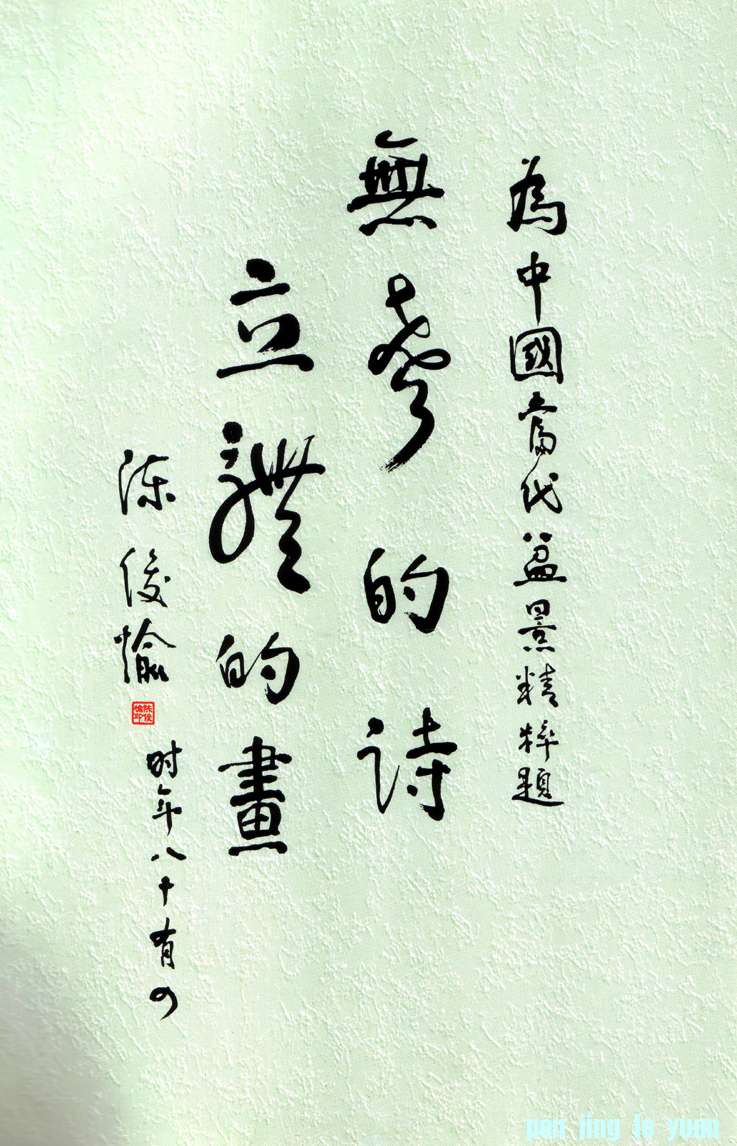 為中國當代盆景精粹題
無聲的詩
立體的畫
陈俊愉
陈俊愉印
时年八十有四
pen jing le yuan